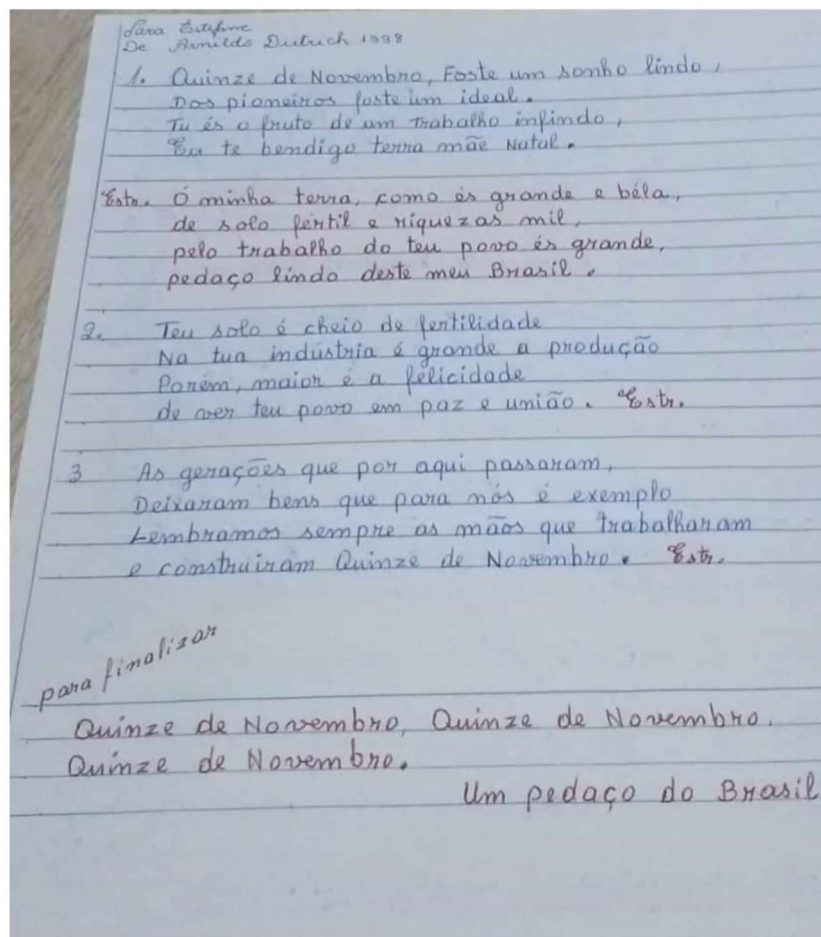 Para Estefane
De Arnildo Dietrich 1998
1. Quinze de Novembro, Foste um sonho lindo,
Dos pioneiros foste um ideal.
Tu és o fruto de um Trabalho infindo,
Eu te bendigo terra mãe Natal.
Estr. Ó minha terra, como és grande e béla,
de solo fertil e riquezas mil,
pelo trabalho do teu povo és grande,
pedaço lindo deste meu Brasil.
2. Teu solo é cheio de fertilidade
Na tua indústria é grande a produção
Porém, maior é a felicidade
de ver teu povo em paz e união. Estr.
3 As gerações que por aqui passaram,
Deixaram bens que para nós é exemplo
Lembramos sempre as mãos que Trabalharam
e construiram Quinze de Novembro. Estr.
para finalizar
Quinze de Novembro, Quinze de Novembro.
Quinze de Novembro.
Um pedaço do Brasil